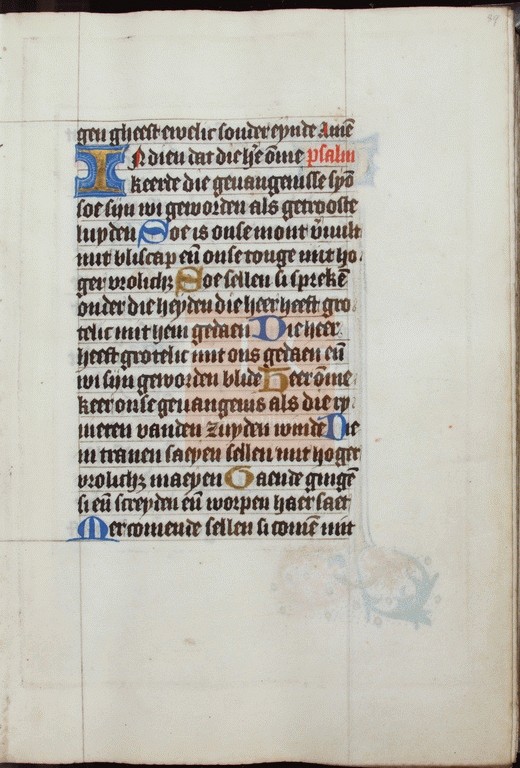 89
gen gheest ewelic sonder eynde Amē
In dien dat die hē̄ om̄e psalm
keerde die geuangenisse syō
soe sijn wi geworden als getrooste
luyden Soe is onse mont v̄uult
mit bliscap eñ onse tonge mit ho
ger vrolichz Soe sellen si sprekē
onder die heyden die heer heeft gro
telic mit hem gedaen Die heer
heeft grotelic mit ons gedaen eñ
wi sijn geworden blide Heer om̄e
keer onse geuangenis als die ry
uieren vanden zuyden winde Die
in tranen saeyen sellen mit hoger
vrolichz maeyen Gaende gingē
si eñ screyden eñ worpen haer saet
Mer comende sellen si comē mit